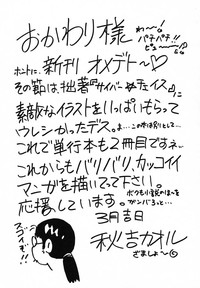 おかわり様
わ〜!
パチパチ!!
ホントに、新刊 オメデト〜♡
その節は、拙著『サイバー☆チェイス』に
素敵なイラストをいっぱいもらって
ウレシかったデス。
これで単行本も2冊目ですネ。
これからもバリバリ、カッコイイ
マンガを描いてって下さい。
応援しています。
ガンバろっと…
3月吉日
秋吉カオル
スゴイぞ!!